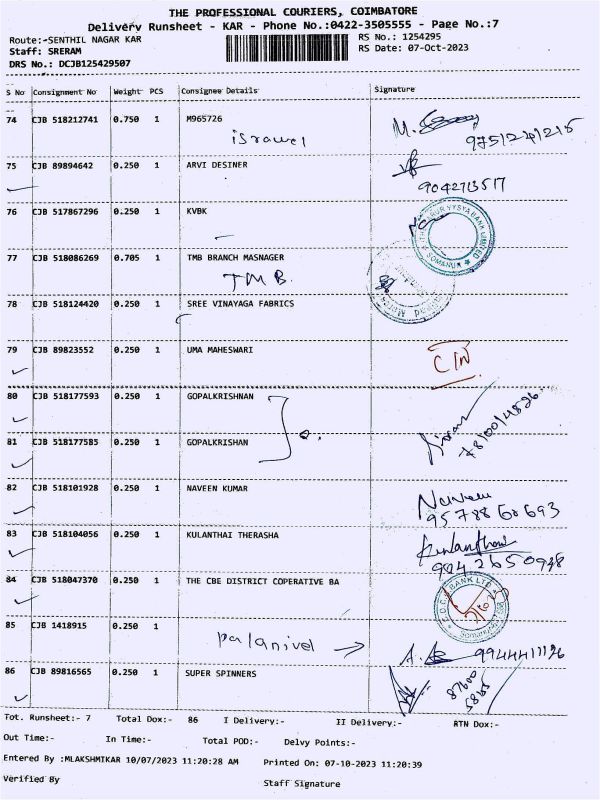 THE PROFESSIONAL COURIERS, COIMBATORE
Delivery Runsheet - KAR - Phone No.:0422-3505555 - Page No.:7
Route:-SENTHIL NAGAR KAR RS No.: 1254295
Staff: SRERAM RS Date: 07-Oct-2023
DRS No.: DCJB125429507
S No Consignment No Weight PCS Consignee Details Signature
74 CJB 518212741 0.750 1 M965726
israwel 9751241215
75 CJB 89894642 0.250 1 ARVI DESINER
9042713517
76 CJB 517867296 0.250 1 KVBK
77 CJB 518086269 0.705 1 TMB BRANCH MASNAGER
TMB.
78 CJB 518124420 0.250 1 SREE VINAYAGA FABRICS
79 CJB 89823552 0.250 1 UMA MAHESWARI
80 CJB 518177593 0.250 1 GOPALKRISHNAN
81 CJB 518177585 0.250 1 GOPALKRISHAN
82 CJB 518101928 0.250 1 NAVEEN KUMAR Naveen
83 CJB 518104056 0.250 1 KULANTHAI THERASHA
84 CJB 518047370 0.250 1 THE CBE DISTRICT COPERATIVE BA
85 CJB 1418915 0.250 1
palanivel → 9944411126
86 CJB 89816565 0.250 1 SUPER SPINNERS
Tot. Runsheet:- 7 Total Dox:- 86 I Delivery:- II Delivery:- RTN Dox:-
Out Time:- In Time:- Total POD:- Delvy Points:-
Entered By :MLAKSHMIKAR 10/07/2023 11:20:28 AM Printed On: 07-10-2023 11:20:39
Verified By Staff Signature